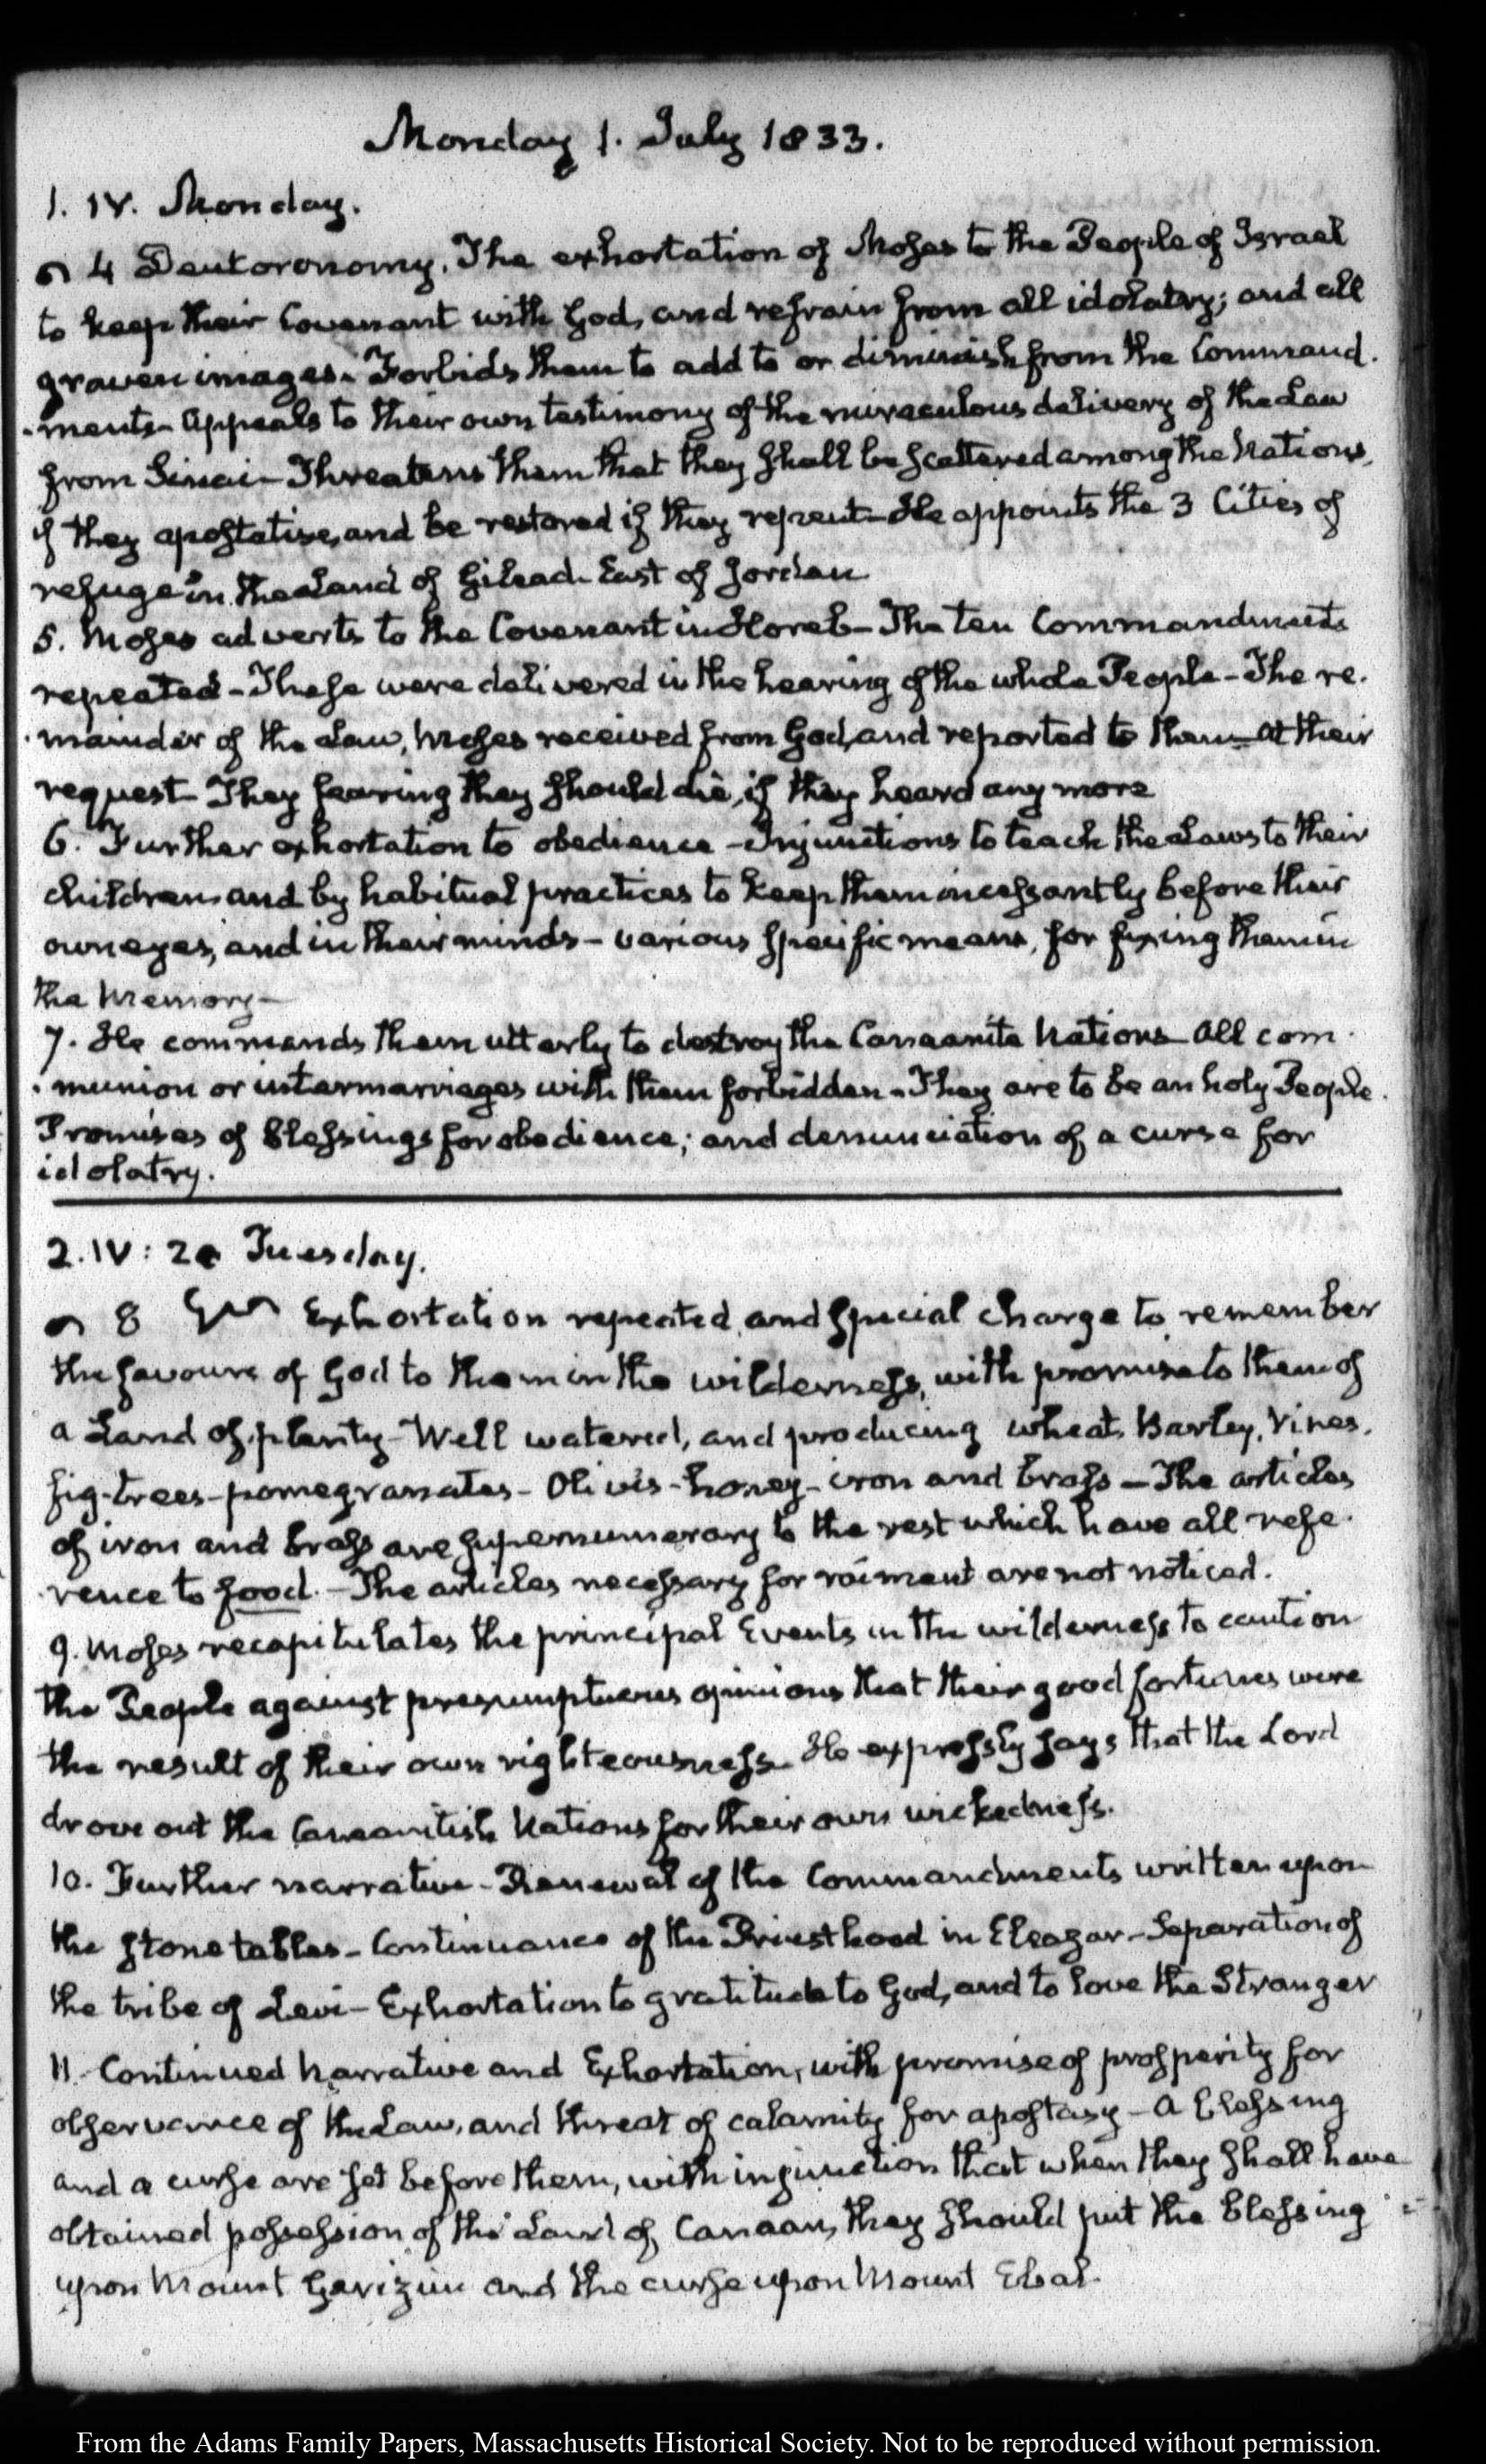 Monday 1. July 1833.
1. IV. Monday.
4 Deutoronomy. The exhortation of Moses to the People of Israel
to keep their Covenant with God, and refrain from all idolatry; and all
graven images. Forbids them to add to or diminish from the Command.
-ments- Appeals to their own testimony of the miraculous delivery of the Law
from Sinai- Threatens them that they shall be scattered among the Nations,
if they apostatise, and be restored if they repent- He appoints the 3 Cities of
refuge in the Land of Gilead- East of Jordan
5. Moses adverts to the Covenant in Horeb- The ten Commandments
repeated- These were delivered in the hearing of the whole People- The re.
mainder of the Law, Moses received from God, and reported to them- at their
request- They fearing they should die, if they heard any more
6. Further exhortation to obedience- Injunctions to teach the Laws to their
children and by habitual practices to keep them incessantly before their
own eyes, and in their minds- various specific means, for fixing them in
the Memory-
7. He commands them utterly to destroy the Canaanite Nations- All com.
munion or intermarriages with them forbidden- They are to be an holy People.
Promises of blessings for obedience; and denunciation of a curse for
idolatry.
2. IV: 20 Tuesday.
8 Exhortation repeated, and special charge to remember
the favours of God to them in the wilderness, with promise to them of
a Land of plenty- Well watered, and producing wheat, Barley, Vines,
fig-trees- pomegranates- Olives- honey- iron and brass- The articles
of iron and brass are supernumerary to the rest which have all refe.
rence to food.- The articles necessary for raiment are not noticed.
9. Moses recapitulates the principal Events in the wilderness to caution
the People against presumptuous opinions that their good fortunes were
the result of their own righteousness- He expressly says that the Lord
drove out the Canaanitish Nations for their own wickedness.
10. Further narrative- Renewal of the Commandments written upon
the stone tables- Continuance of the Priesthood in Eleazar- Separation of
the tribe of Levi- Exhortation to gratitude to God, and to love the Stranger
11. Continued Narrative and Exhortation, with promise of prosperity for
observance of the Law, and threat of calamity for apostasy- A blessing
and a curse are set before them, with injunction that when they shall have
obtained possession of the Land of Canaan, they should put the blessing
upon Mount Garizim and the curse upon Mount Ebal.
From the Adams Family Papers, Massachusetts Historical Society. Not to be reproduced without permission.